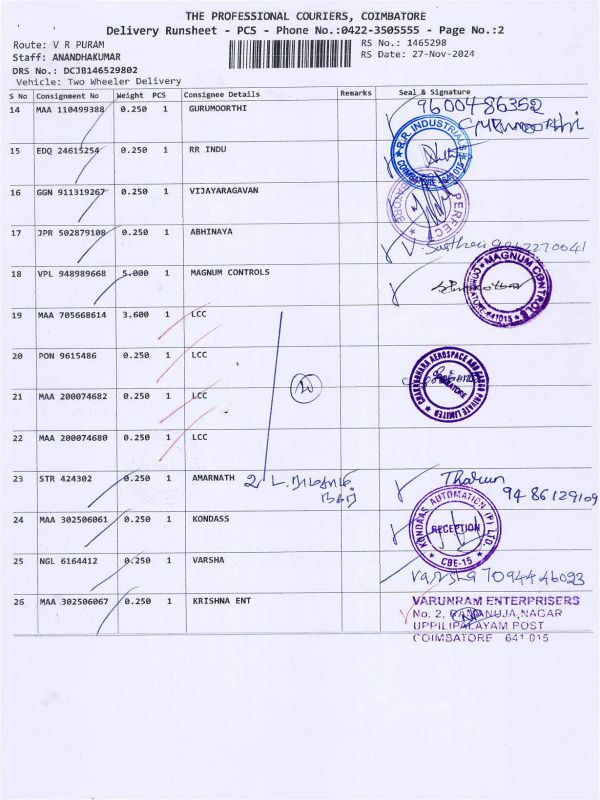 THE PROFESSIONAL COURIERS, COIMBATORE
Delivery Runsheet - PCS - Phone No.:0422-3505555 - Page No.:2
Route: V R PURAM
RS No.: 1465298
Staff: ANANDHAKUMAR
RS Date: 27-Nov-2024
DRS No.: DCJB146529802
Vehicle: Two Wheeler Delivery
S No Consignment No Weight PCS Consignee Details Remarks Seal & Signature
14 MAA 110499388 0.250 1 GURUMOORTHI 9600486352
15 EDQ 24615254 0.250 1 RR INDU R.R. INDUSTRIALS COIMBATORE 641 015
16 GGN 911319267 0.250 1 VIJAYARAGAVAN PERFECT
17 JPR 502879108 0.250 1 ABHINAYA
18 VPL 948989668 5.000 1 MAGNUM CONTROLS MAGNUM CONTROLS
19 MAA 705668614 3.600 1 LCC
20 PON 9615486 0.250 1 LCC
21 MAA 200074682 0.250 1 LCC
22 MAA 200074680 0.250 1 LCC
23 STR 424302 0.250 1 AMARNATH Tharun 9486129109
24 MAA 302506061 0.250 1 KONDASS KONDAAS AUTOMATION (P) LTD. RECEPTION CBE-15
25 NGL 6164412 0.250 1 VARSHA Varsha 7094446093
26 MAA 302506067 0.250 1 KRISHNA ENT VARUNRAM ENTERPRISERS
No. 2, RAMANUJA NAGAR
UPPILIPALAYAM POST
COIMBATORE 641 015